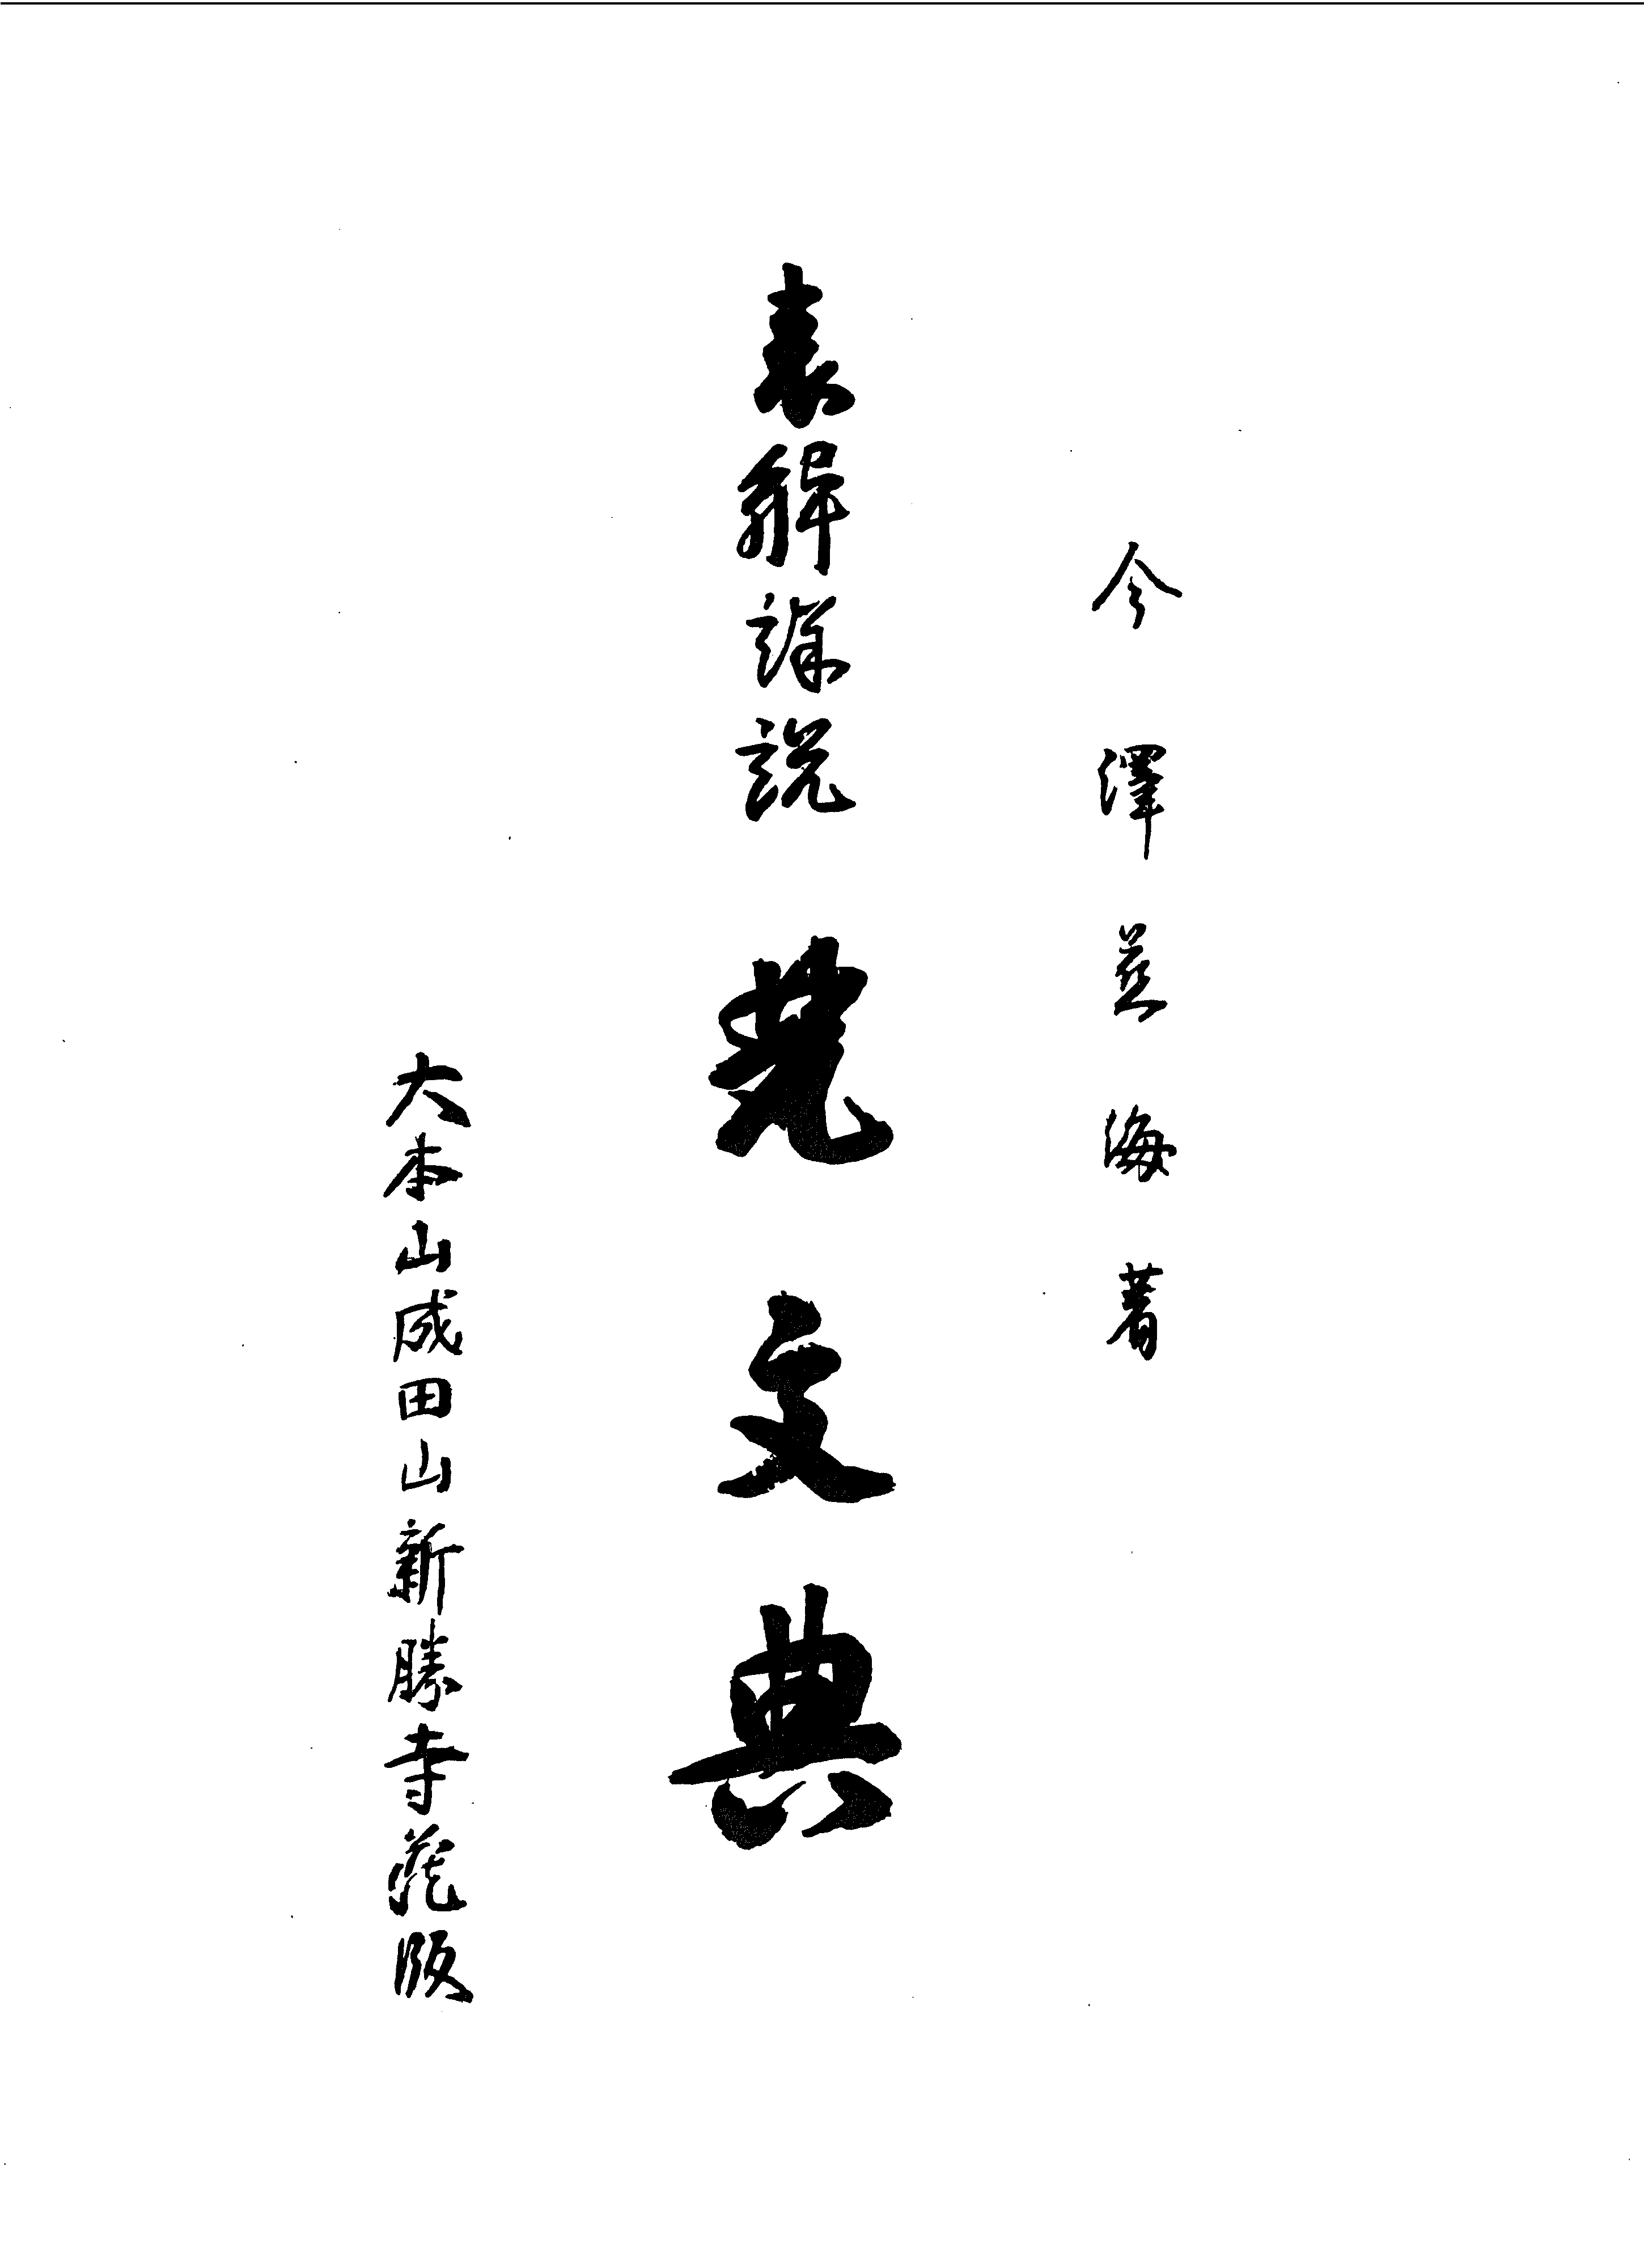 今澤慈海著
表解詳説 梵文典
大本山成田山新勝寺蔵版